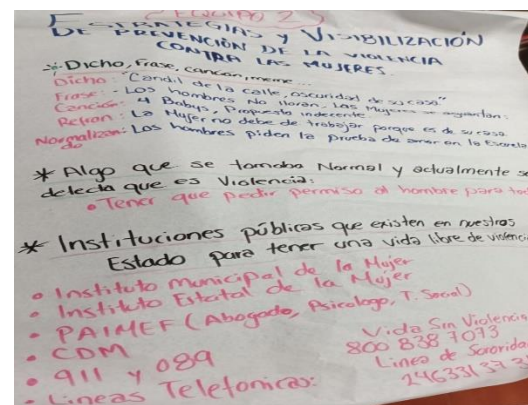 (EQUIPO 2)
ESTRATEGIAS y VISIBILIZACIÓN
DE PREVENCIÓN DE LA VIOLENCIA
CONTRA LAS MUJERES.
* Dicho, frase, cancan, meme...
Dicho: "Candil de la calle, oscuridad de su casa"
Frase: - Los hombres No lloran. Las Mujeres se aguantan:
Canción: 4 Babys, Propuesta indecente.
Refran: La Mujer no debe de trabajar porque es de su casa.
Normalizan: Los hombres piden la prueba de amor en la Escuela
do
* Algo que se tomaba Normal y actualmente se
detecta que es Violencia:
• Tener que pedir permiso al hombre para
* Instituciones públicas que existen en nuestros
Estado para tener una vida libre de violencia
• Instituto Municipal de la Mujer
• Instituto Estatal de la Mujer
• PAIMEF (Abogado, Psicologo, T. Social)
• CDM
• 911 y 089
• Lineas Telefonicas:
Vida Sin Violencia
800 838 7073
Linea de Sororidad